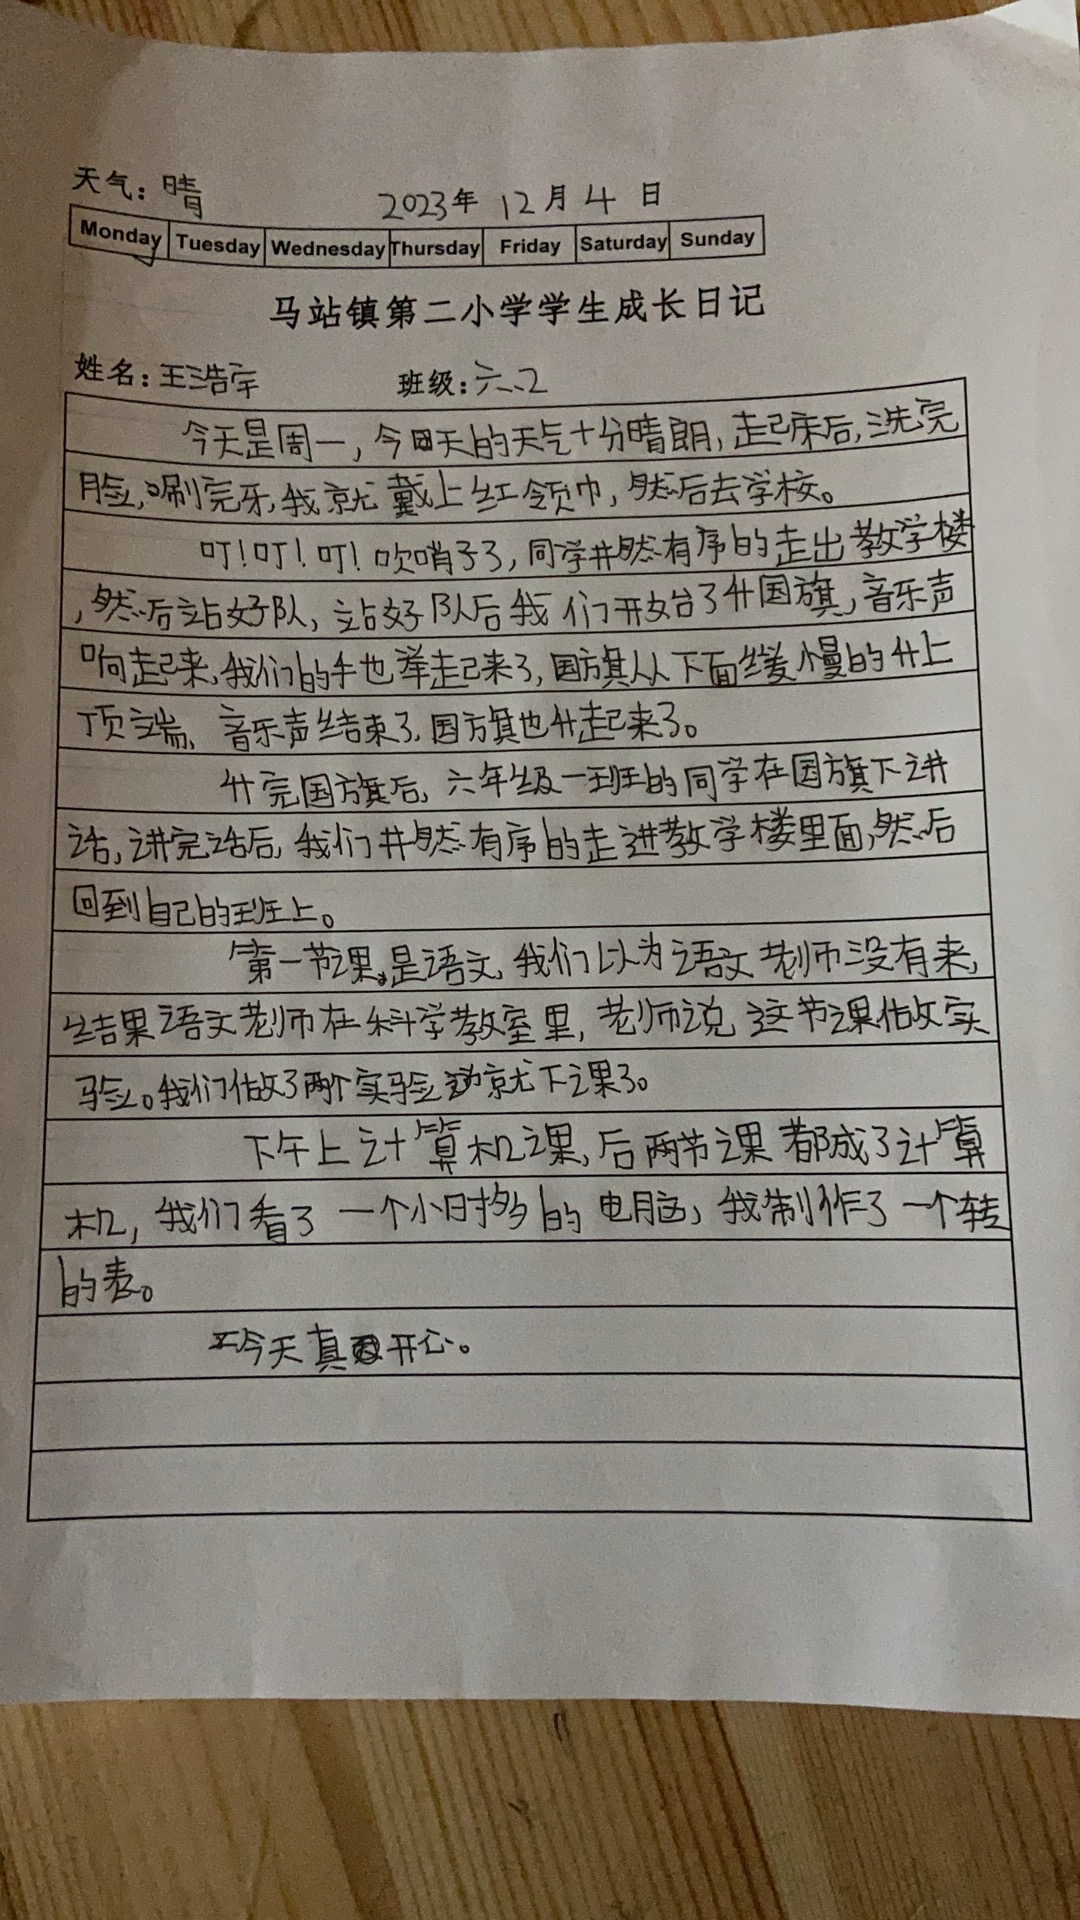 天气：晴 2023年 12月 4 日
Monday Tuesday Wednesday Thursday Friday Saturday Sunday
马站镇第二小学学生成长日记
姓名：王浩宇 班级：六.2
今天是周一，今天的天气十分晴朗，起床后，洗完
脸，唰完牙，我就戴上红领巾，然后去学校。
叮！叮！叮！吹哨子了，同学井然有序的走出教学楼
，然后站好队，站好队后我们开始了升国旗，音乐声
响起来，我们的手也举起来了，国旗从下面缓慢的升上
顶端、音乐声结束了，国旗也升起来了。
升完国旗后，六年级一班的同学在国旗下讲
话，讲完话后，我们井然有序的走进教学楼里面，然后
回到自己的班上。
第一节课，是语文，我们以为语文老师没有来，
结果语文老师在科学教室里，老师说这节课做实
验。我们做了两个实验就下课了。
下午上计算机课，后两节课都成了计算
机，我们看了一个小时多的电脑，我制作了一个转
的表。
今天真开心。